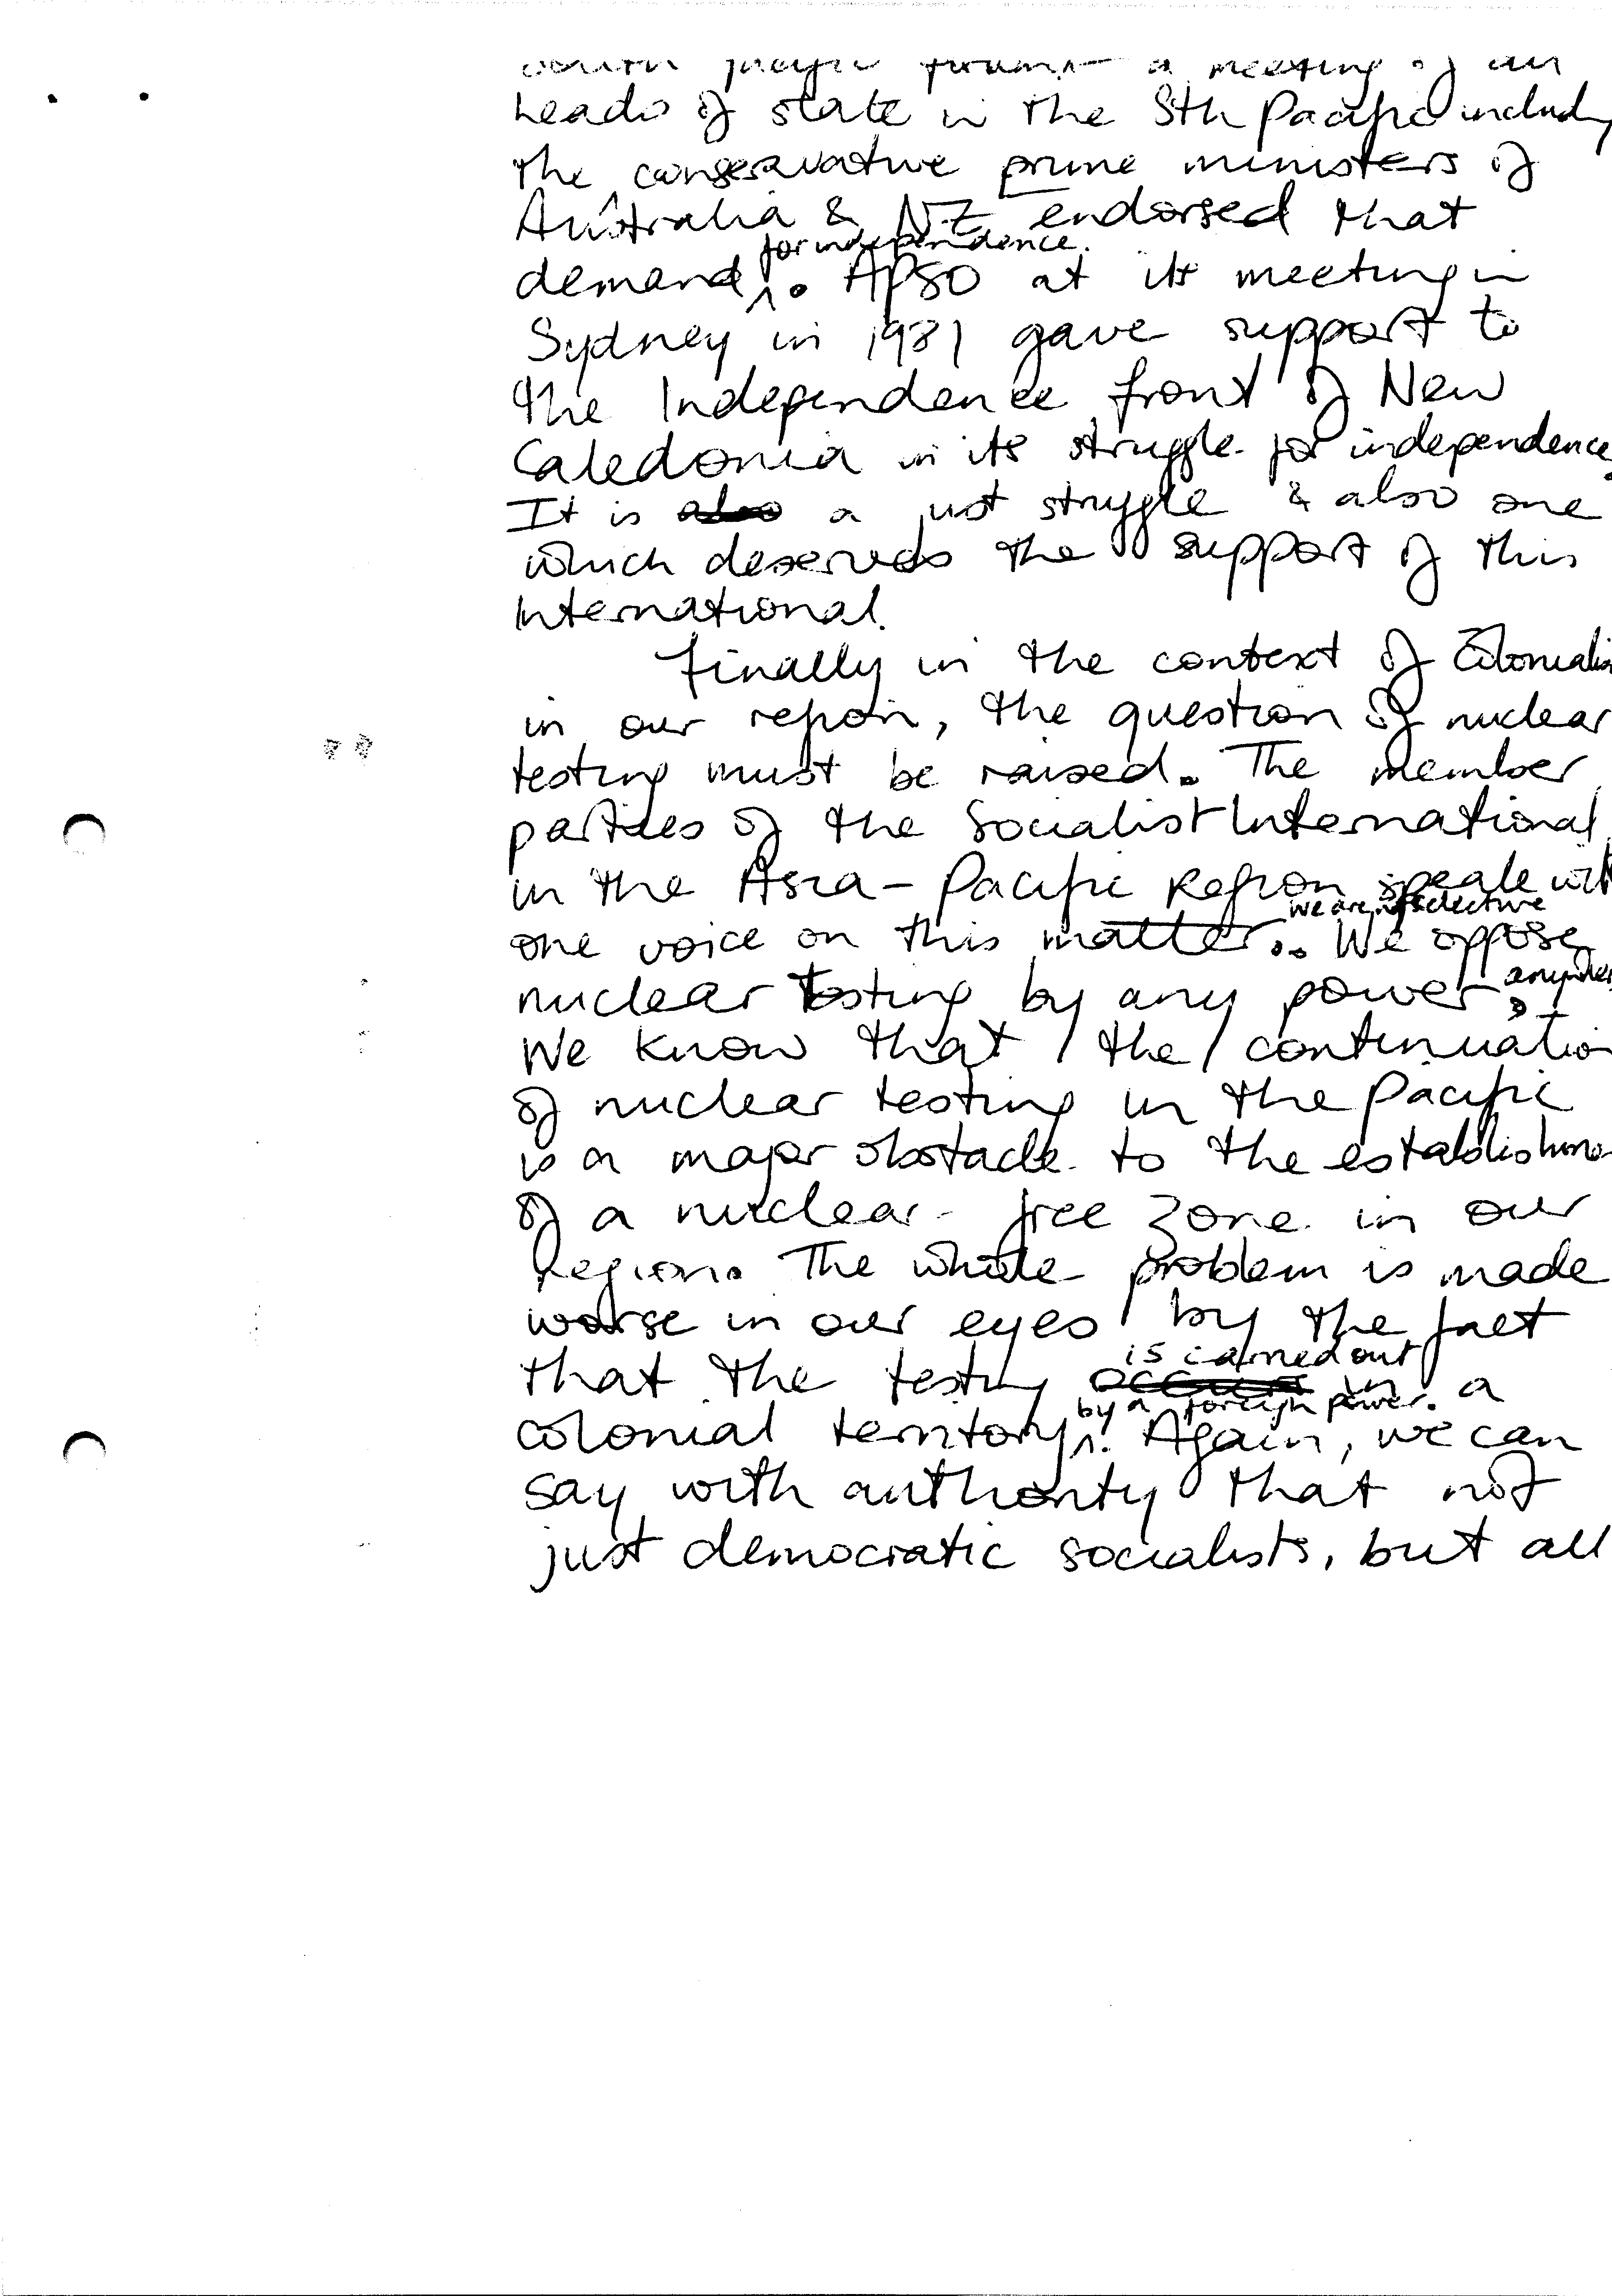 South Pacific Forum - a meeting of all
heads of state in the Sth Pacific includ
the conservative prime ministers of
Australia & NZ endorsed that
for independence.
demand. APSO at its meeting in
Sydney in 1981 gave support to
the Independence front of New
Caledonia in its struggle for independence.
It is also a just struggle & also one
which deserves the support of this
International.
Finally in the context of Coloniali
in our region, the question of nuclear
testing must be raised. The member
parties of the Socialist International
in the Asia-Pacific Region speak wit
we are not selective
one voice on this matter. We oppose
anywher
nuclear testing by any power.
We know that the continuatio
of nuclear testing in the Pacific
is a major obstacle to the establishme
of a nuclear-free zone in our
Region. The whole problem is made
worse in our eyes by the fact
is carried out
that the testing occurs in a
by a foreign power.
colonial territory. Again, we can
say with authority that not
just democratic socialists, but all